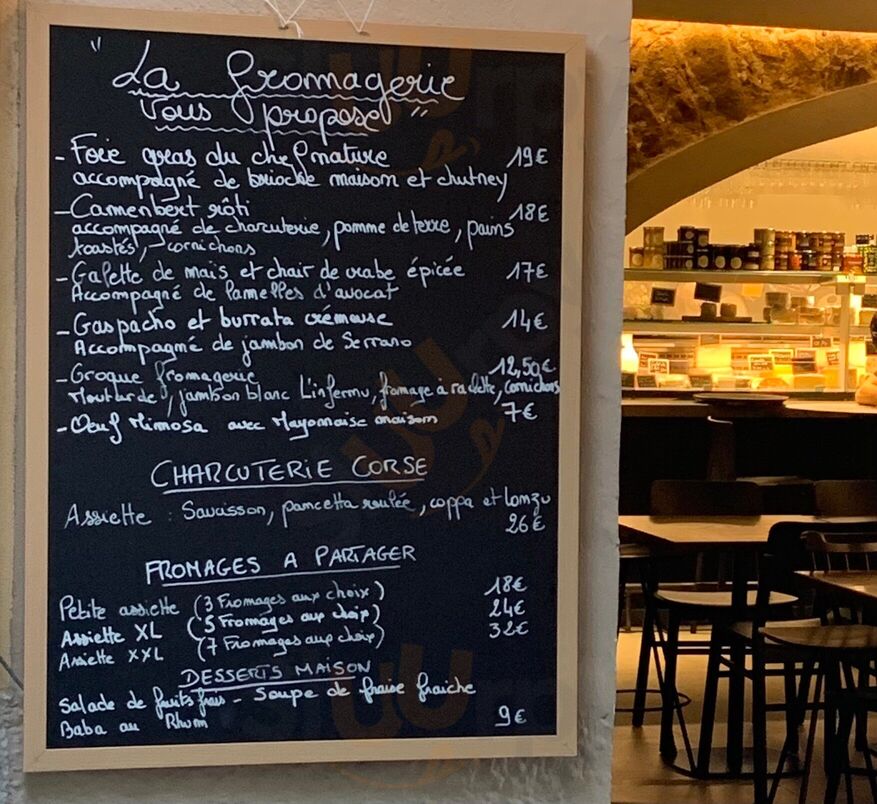 "La fromagerie
Vous propose"
- Foie gras du chef nature 19€
accompagné de brioche maison et chutney
- Camenbert rôti 18€
accompagné de charcuterie, pomme de terre, pains
toastés, cornichons
- Galette de mais et chair de crabe épicée 17€
Accompagné de lamelles d'avocat
- Gaspacho et burrata crémeuse 14€
Accompagné de jambon de Serrano
- Croque fromagerie 12,50€
Moutarde, jambon blanc L'infernu, fromage à raclette, cornichons
- Oeuf Mimosa avec Mayonnaise maison 7€
CHARCUTERIE CORSE
Assiette : Saucisson, pancetta roulée, coppa et lonzu
26€
FROMAGES A PARTAGER
Petite assiette (3 Fromages aux choix) 18€
Assiette XL (5 Fromages au choix) 24€
Assiette XXL (7 Fromages au choix) 32€
DESSERTS MAISON
Salade de fruits frais - Soupe de fraise fraiche
Baba au Rhum 9€